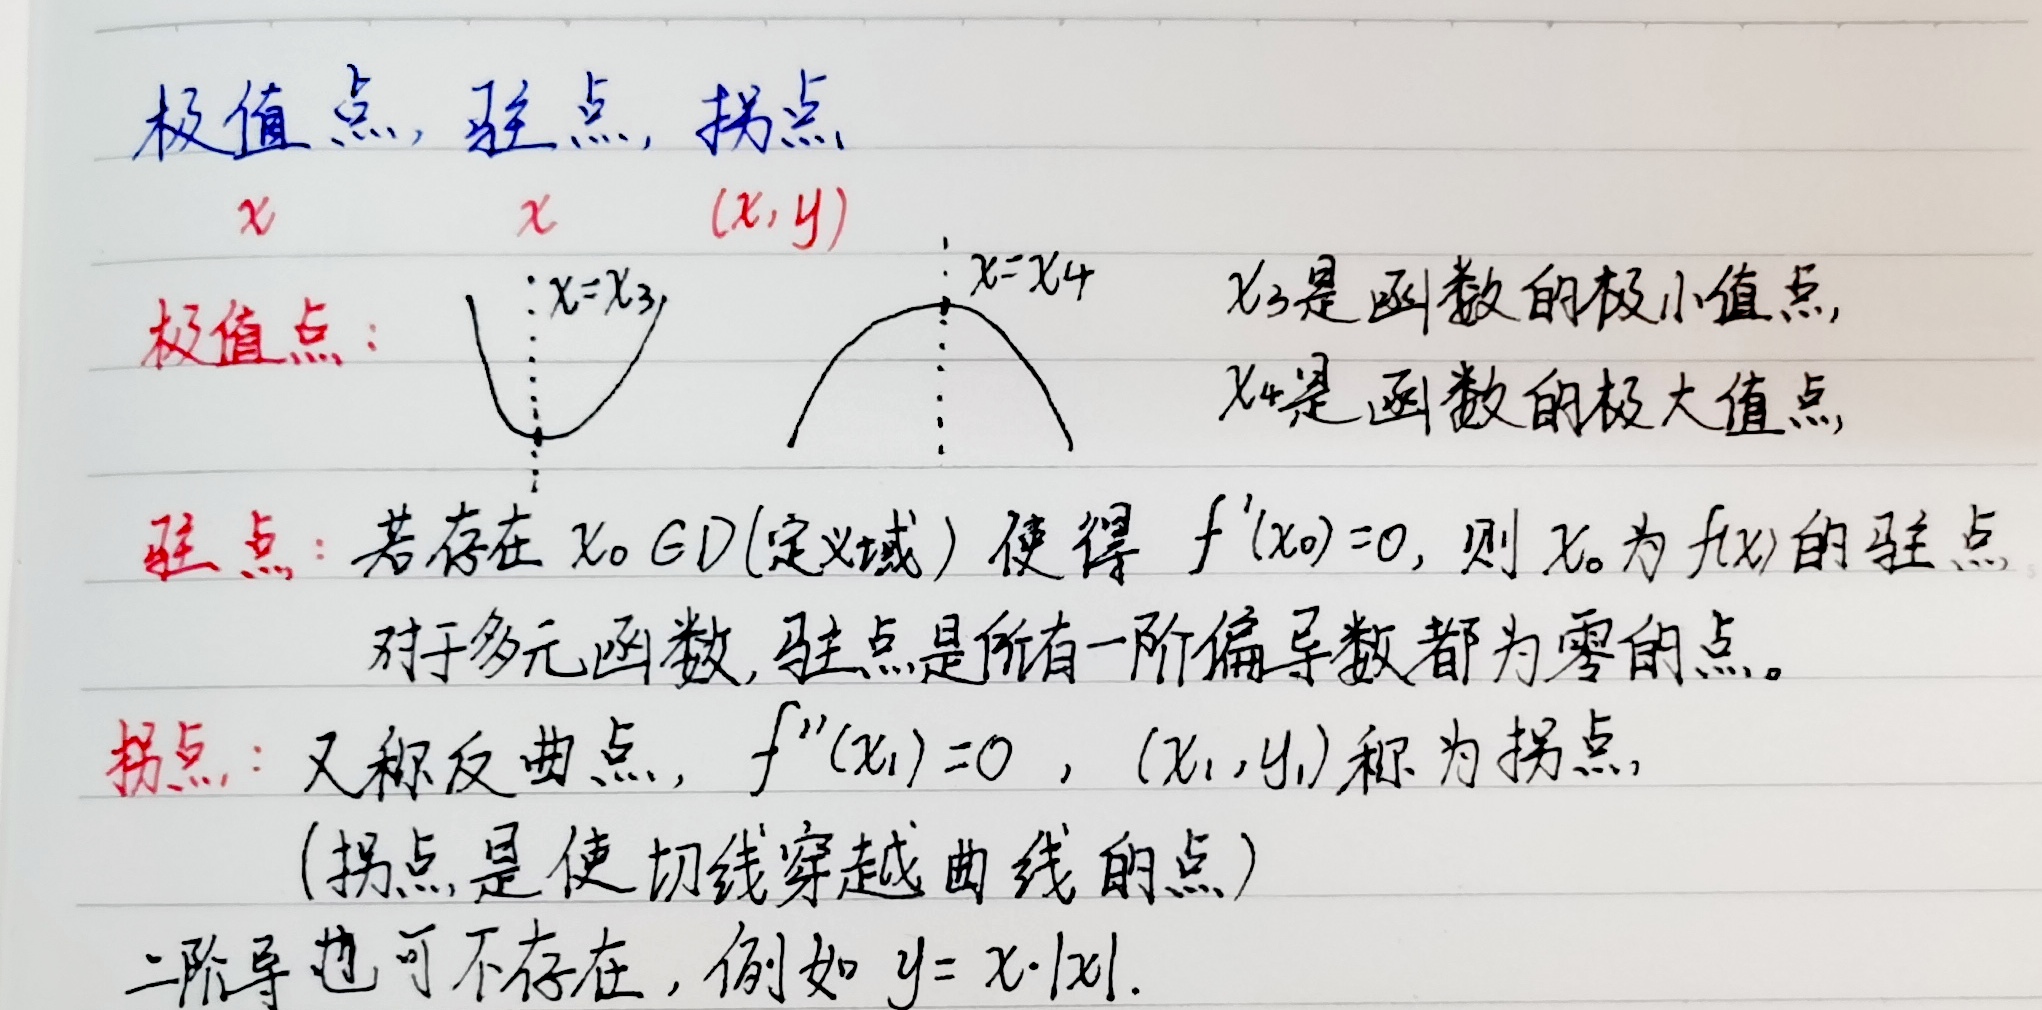 极值点, 驻点, 拐点
x x (x, y)
极值点: x=x₃ x=x₄ x₃是函数的极小值点,
x₄是函数的极大值点,
驻点: 若存在 x₀∈D(定义域) 使得 f'(x₀)=0, 则 x₀为 f(x)的驻点
对于多元函数, 驻点是所有一阶偏导数都为零的点。
拐点: 又称反曲点, f''(x₁)=0 , (x₁, y₁)称为拐点,
(拐点是使切线穿越曲线的点)
二阶导也可不存在, 例如 y= x·|x|.